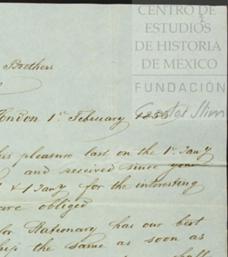 CENTRO DE
ESTUDIOS
DE HISTORIA
DE MÉXICO
FUNDACIÓN
Carlos Slim
Brothers
London 1st February
pleasure last on the 1st Jany
and received since your
& 1 Jany for the interesting
are obliged
for Stationary has our best
ship the same as soon as